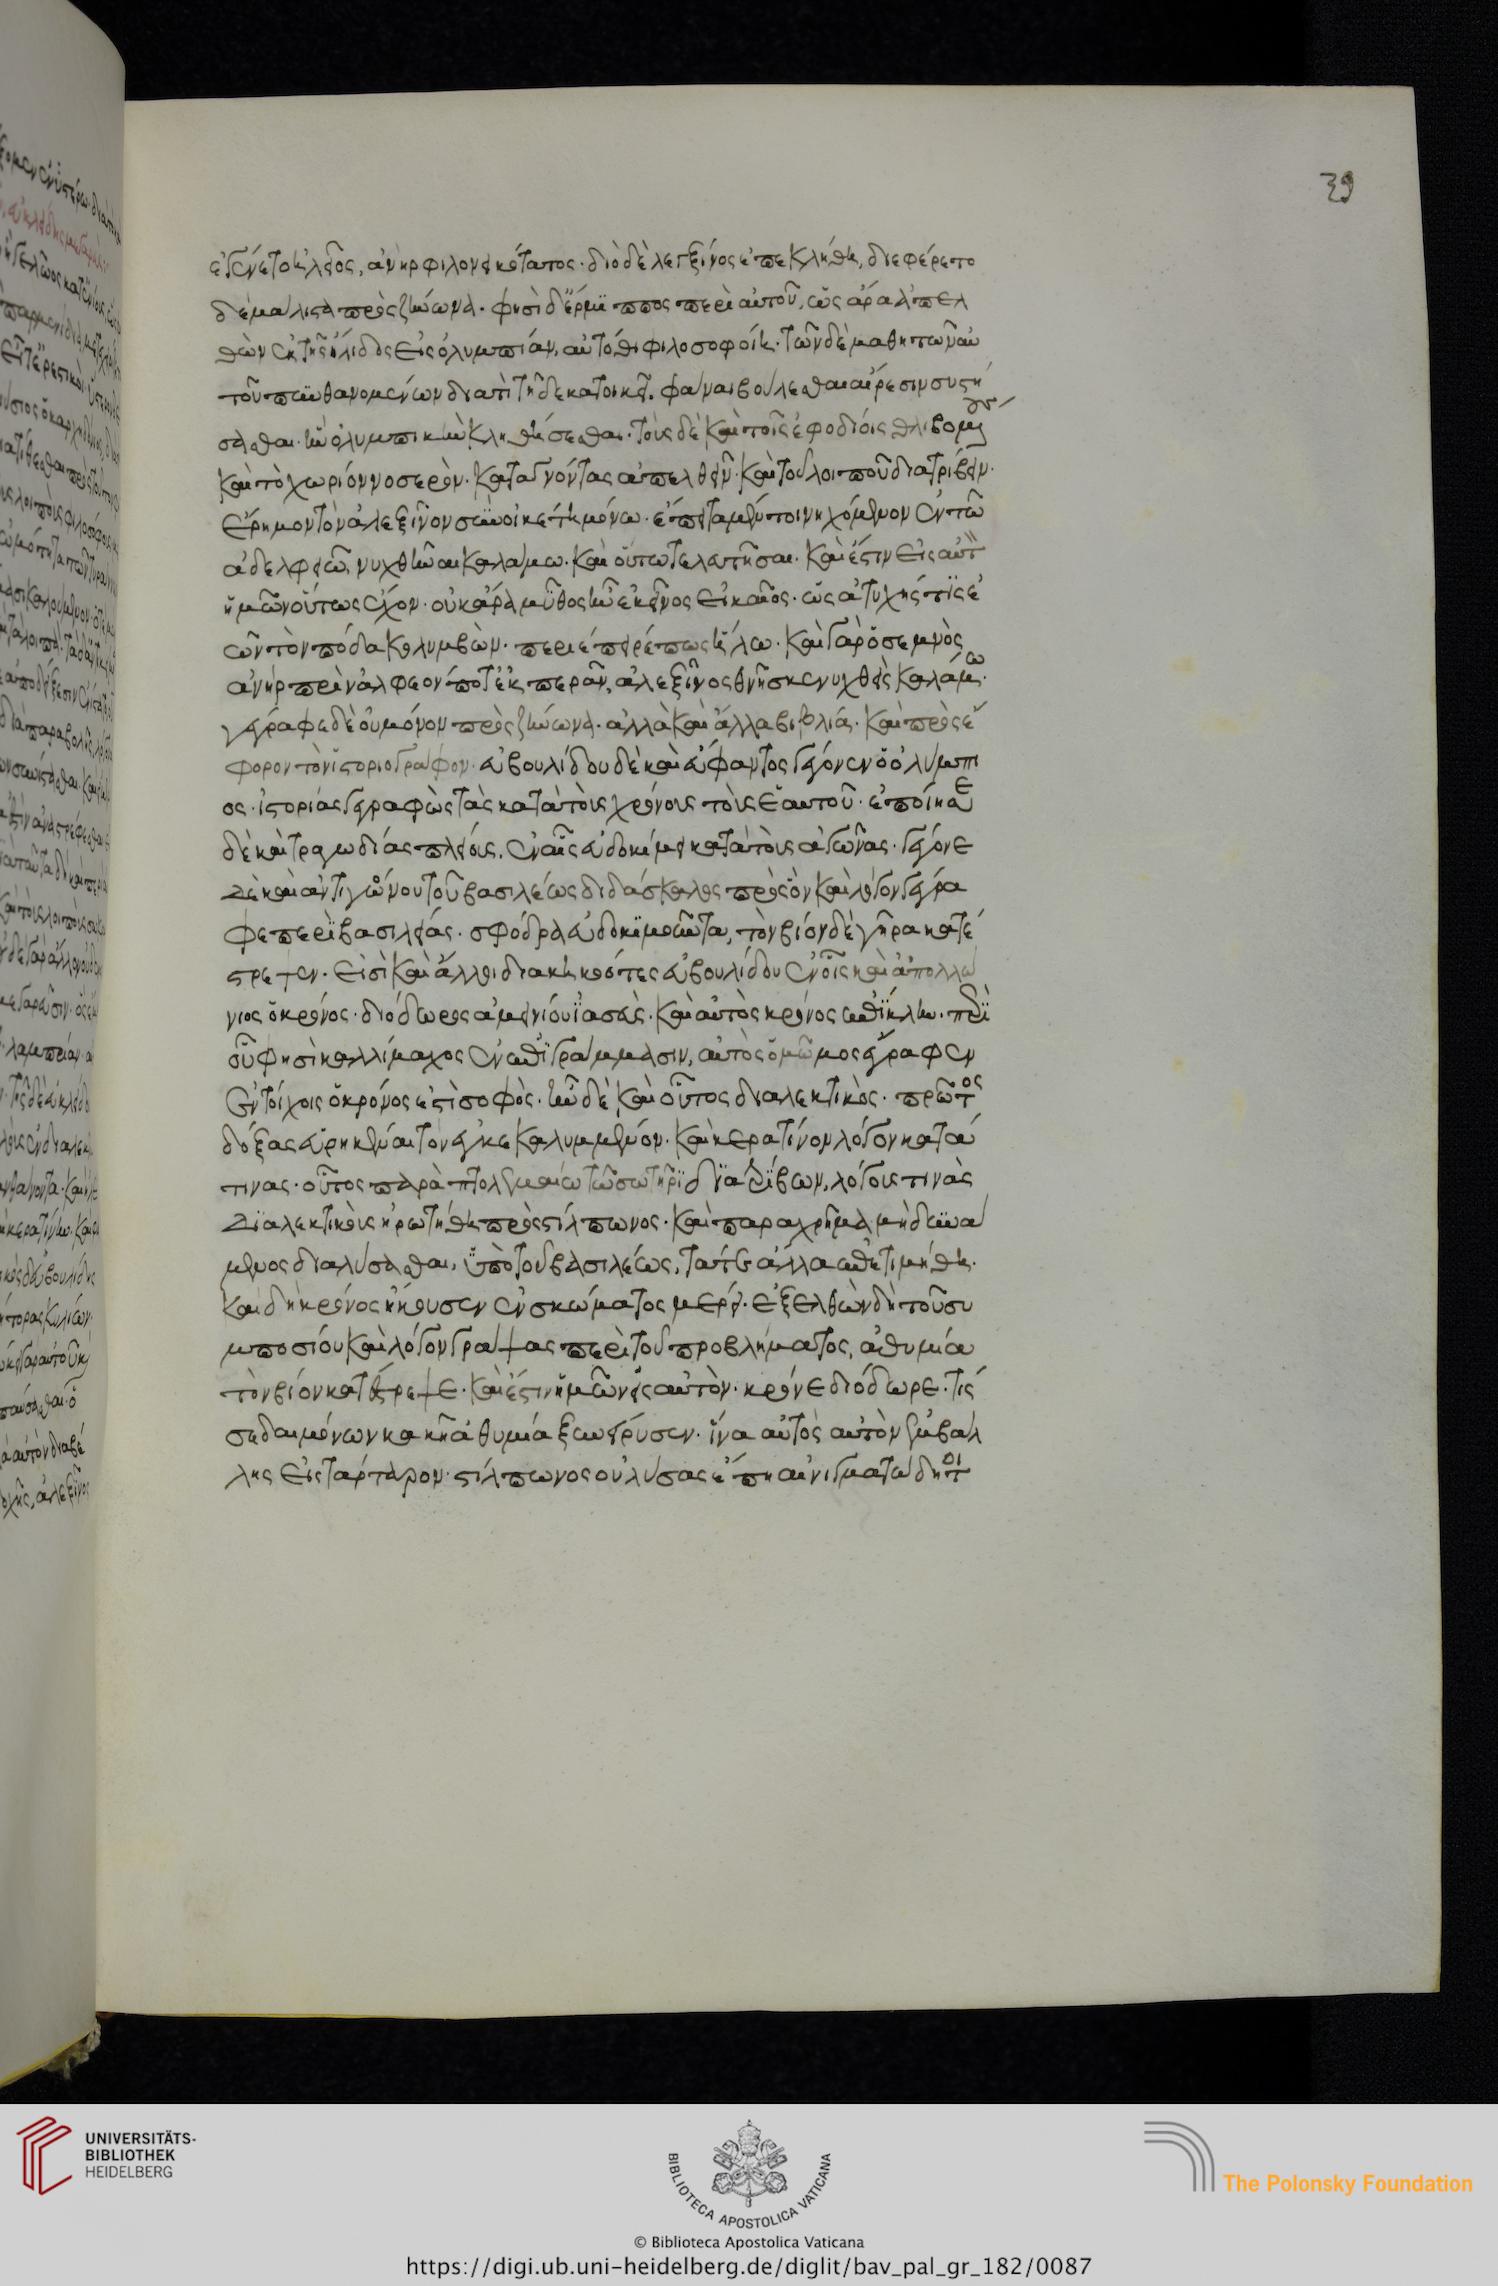 39
ἐγένετο ἠλεῖος, ἀνὴρ φιλονεικότατος· διὸ δὲ λεγξῖνος ἐπεκλήθη, διεφέρετο
δὲ μάλιστα πρὸς ζήνωνα· φησὶ δ' ἕρμιππος περὶ αὐτοῦ, ὡς ἄρα ἀπελ
θὼν ἐκ τῆς ἤλιδος εἰς ὀλυμπίαν, αὐτόθι φιλοσοφοίη· τῶν δὲ μαθητῶν αὐ
τοῦ πυνθανομένων διατί τῇδε κατοικεῖ. φάναι βούλεσθαι αἵρεσιν συστή
σασθαι· ἣν ὀλυμπικὴν κληθήσεσθαι· τοὺς δὲ καὶ τοῖς ἐφοδίοις θλιβομέ
καὶ τὸ χωρίον νοσερὸν· καταγνόντας ἀπελθεῖν· καὶ τοῦ λοιποῦ διατρίβειν·
ἔρημον τὸν ἀλεξῖνον σὺν οἰκέτῃ μόνω· ἔπειτα μέντοι νηχόμενον ἐν τῶ
ἀδελφειῶ, νυχθῆναι καλάμω· καὶ οὕτω τελευτῆσαι· καὶ ἔστιν εἰς αὐτ
ἡμῶν οὕτως ἔχον· οὐκ ἄρα μῦθος ἦν ἐκεῖνος εἰκαῖος· ὡς ἀτυχής τις ἐ
ὢν τὸν πόδα κολυμβῶν· περιέπειρέ πως ἥλω· καὶ γὰρ ὁ σεμνὸς
ἀνὴρ πρὶν ἀλφεόν ποτ' ἐκπερᾶν, ἀλεξῖνος θνῆσκε νυχθεὶς καλάμω·
γέγραφε δὲ οὐ μόνον πρὸς ζήνωνα· ἀλλὰ καὶ ἄλλα βιβλία· καὶ πρὸς ἔ
φορον τὸν ἱστοριογράφον· εὐβουλίδου δὲ καὶ εὔφαντος γέγονεν ὁ ὀλύμπι
ος· ἱστορίας γεγραφὼς τὰς κατὰ τοὺς χρόνους τοὺς ἑαυτοῦ· ἐποίησε
δὲ καὶ τραγωδίας πλείους, ἐν αἷς εὐδοκίμει κατὰ τοὺς ἀγῶνας· γέγονε
δὲ καὶ ἀντιγόνου τοῦ βασιλέως διδάσκαλος πρὸς ὃν καὶ λόγον γέγρα
φε περὶ βασιλείας· σφόδρα εὐδοκιμοῦντα, τὸν βίον δὲ γήρα κατέ
στρεψεν· εἰσὶ καὶ ἄλλοι διακηκοότες εὐβουλίδου ἐν οἷς καὶ ἀπολλώ
νιος ὁ κρόνος· διόδωρος ἀμεινίου ἰασεὺς· καὶ αὐτὸς κρόνος ἐπίκλην· περὶ
οὗ φησὶ καλλίμαχος ἐν ἐπιγράμμασιν, αὐτὸς ὁ μῶμος ἔγραφεν
ἐν τοίχοις ὁ κρόνος ἐστὶ σοφὸς· ἦν δὲ καὶ οὗτος διαλεκτικὸς· πρῶτος
δόξας εὑρηκέναι τὸν ἐγκεκαλυμμένον· καὶ κερατίνον λόγον κατά
τινας· οὗτος παρὰ πτολεμαίω τῶ σωτῆρι διατρίβων, λόγους τινὰς
διαλεκτικοὺς ἠρωτήθη πρὸς στίλπωνος· καὶ παραχρῆμα μὴ δυνά
μενος διαλύσασθαι, ὑπὸ τοῦ βασιλέως, τά τε ἄλλα ἐπετιμήθη.
καὶ δὴ κρόνος ἤκουσεν ἐν σκώματος μέρει· ἐξελθὼν δὴ τοῦ συ
μποσίου καὶ λόγον γράψας περὶ τοῦ προβλήματος, ἀθυμία
τὸν βίον κατέστρεψε· καὶ ἔστιν ἡμῶν εἰς αὐτὸν· κρόνε διόδωρε· τίς
σε δαιμόνων κακῆ ἀθυμία ξυνείρυσεν· ἵνα αὐτὸς αὐτὸν ἐμβάλ
λης εἰς τάρταρον· στίλπωνος οὐ λύσας ἔπη αἰνιγματώδη τοι
UNIVERSITÄTS-
BIBLIOTHEK
HEIDELBERG
BIBLIOTECA APOSTOLICA VATICANA
The Polonsky Foundation
© Biblioteca Apostolica Vaticana
https://digi.ub.uni-heidelberg.de/diglit/bav_pal_gr_182/0087